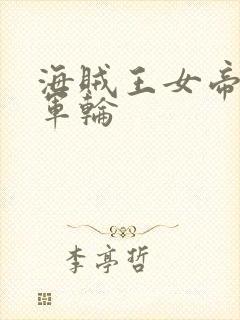 海賊王女帝
軍輪
李亭哲